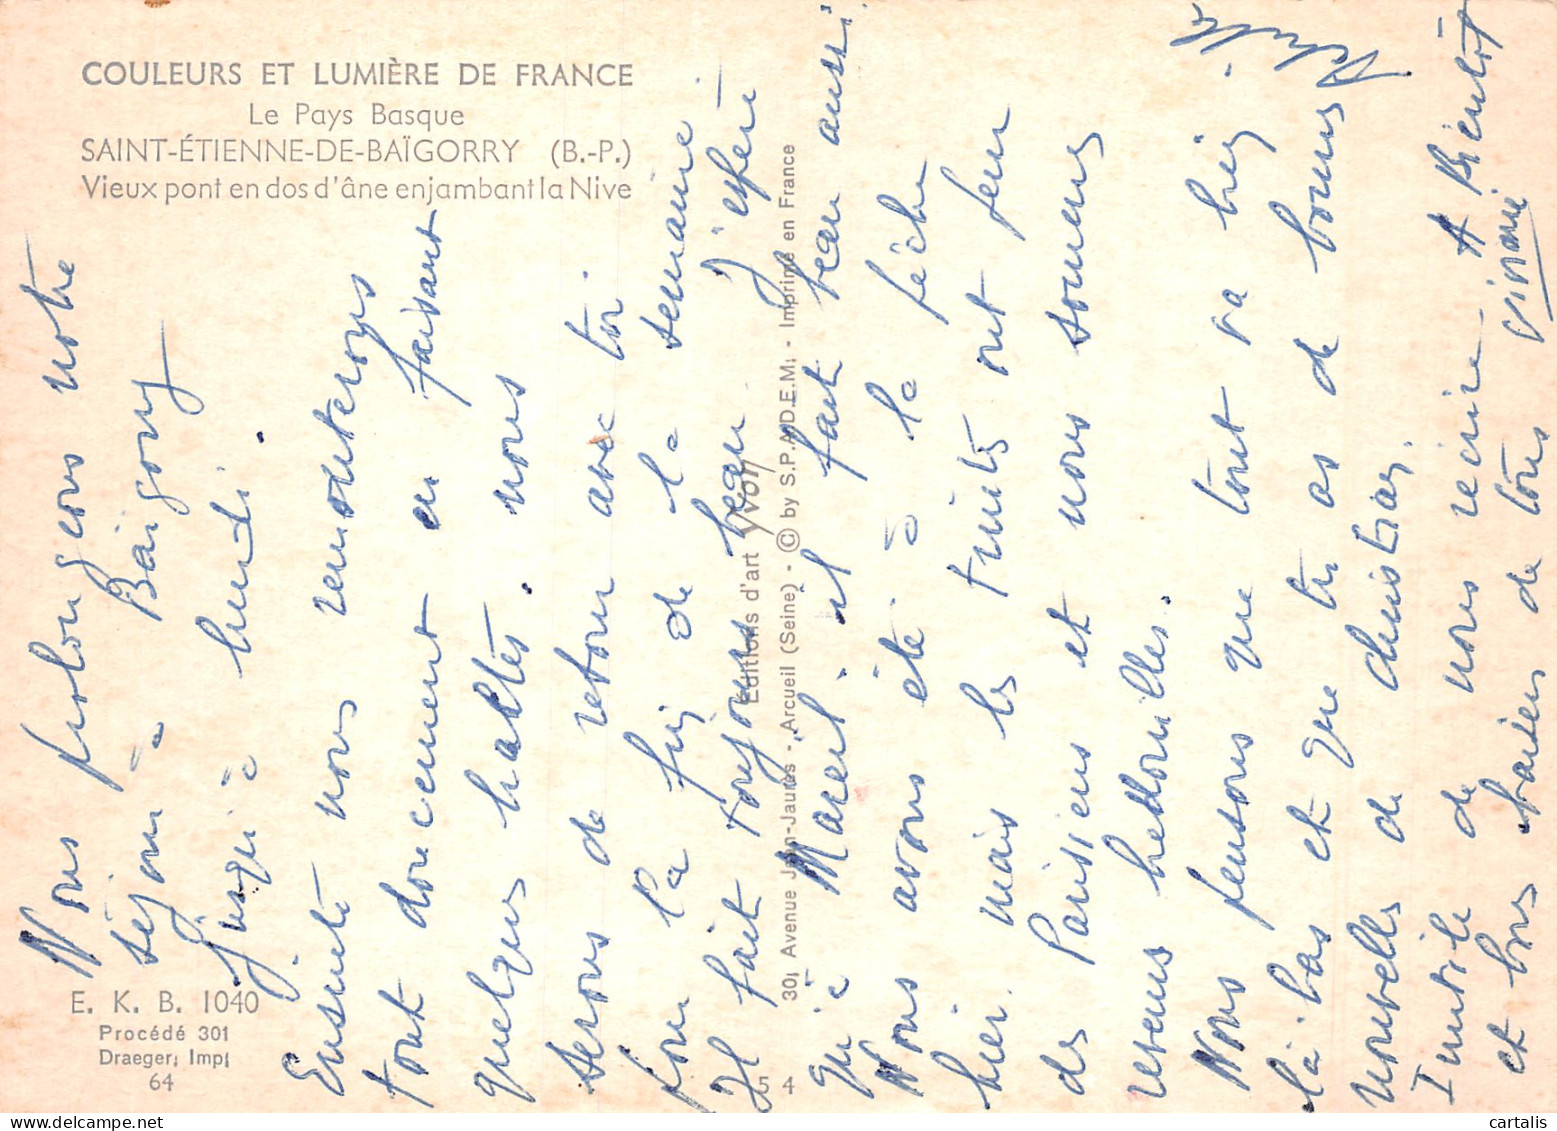 COULEURS ET LUMIÈRE DE FRANCE
Le Pays Basque
SAINT-ÉTIENNE-DE-BAÏGORRY (B.-P.)
Vieux pont en dos d'âne enjambant la Nive
E. K. B. 1040
Procédé 301
Draeger, Imp.
64
Éditions d'art YVON
30, Avenue Jean-Jaurès - Arcueil (Seine) - © by S.P.A.D.E.M. - Imprimé en France
5 4
Nous prolongeons notre
séjour à Baïgorry
jusqu'à lundi.
Ensuite nous remonterons
tout doucement en faisant
quelques haltes. nous
serons de retour avec toi
pour la fin de la semaine
Il fait toujours beau. J'espère
qu'à Mareil il fait beau aussi
Nous avons été à la pêche
hier. mais les truites ont peur
des Parisiens et nous sommes
revenus bredouilles.
Nous pensons que tout va bien
là-bas et que tu as de bonnes
nouvelles de Christian.
Inutile de nous récrire - A Bientôt
et bons baisers de tous
cartalis